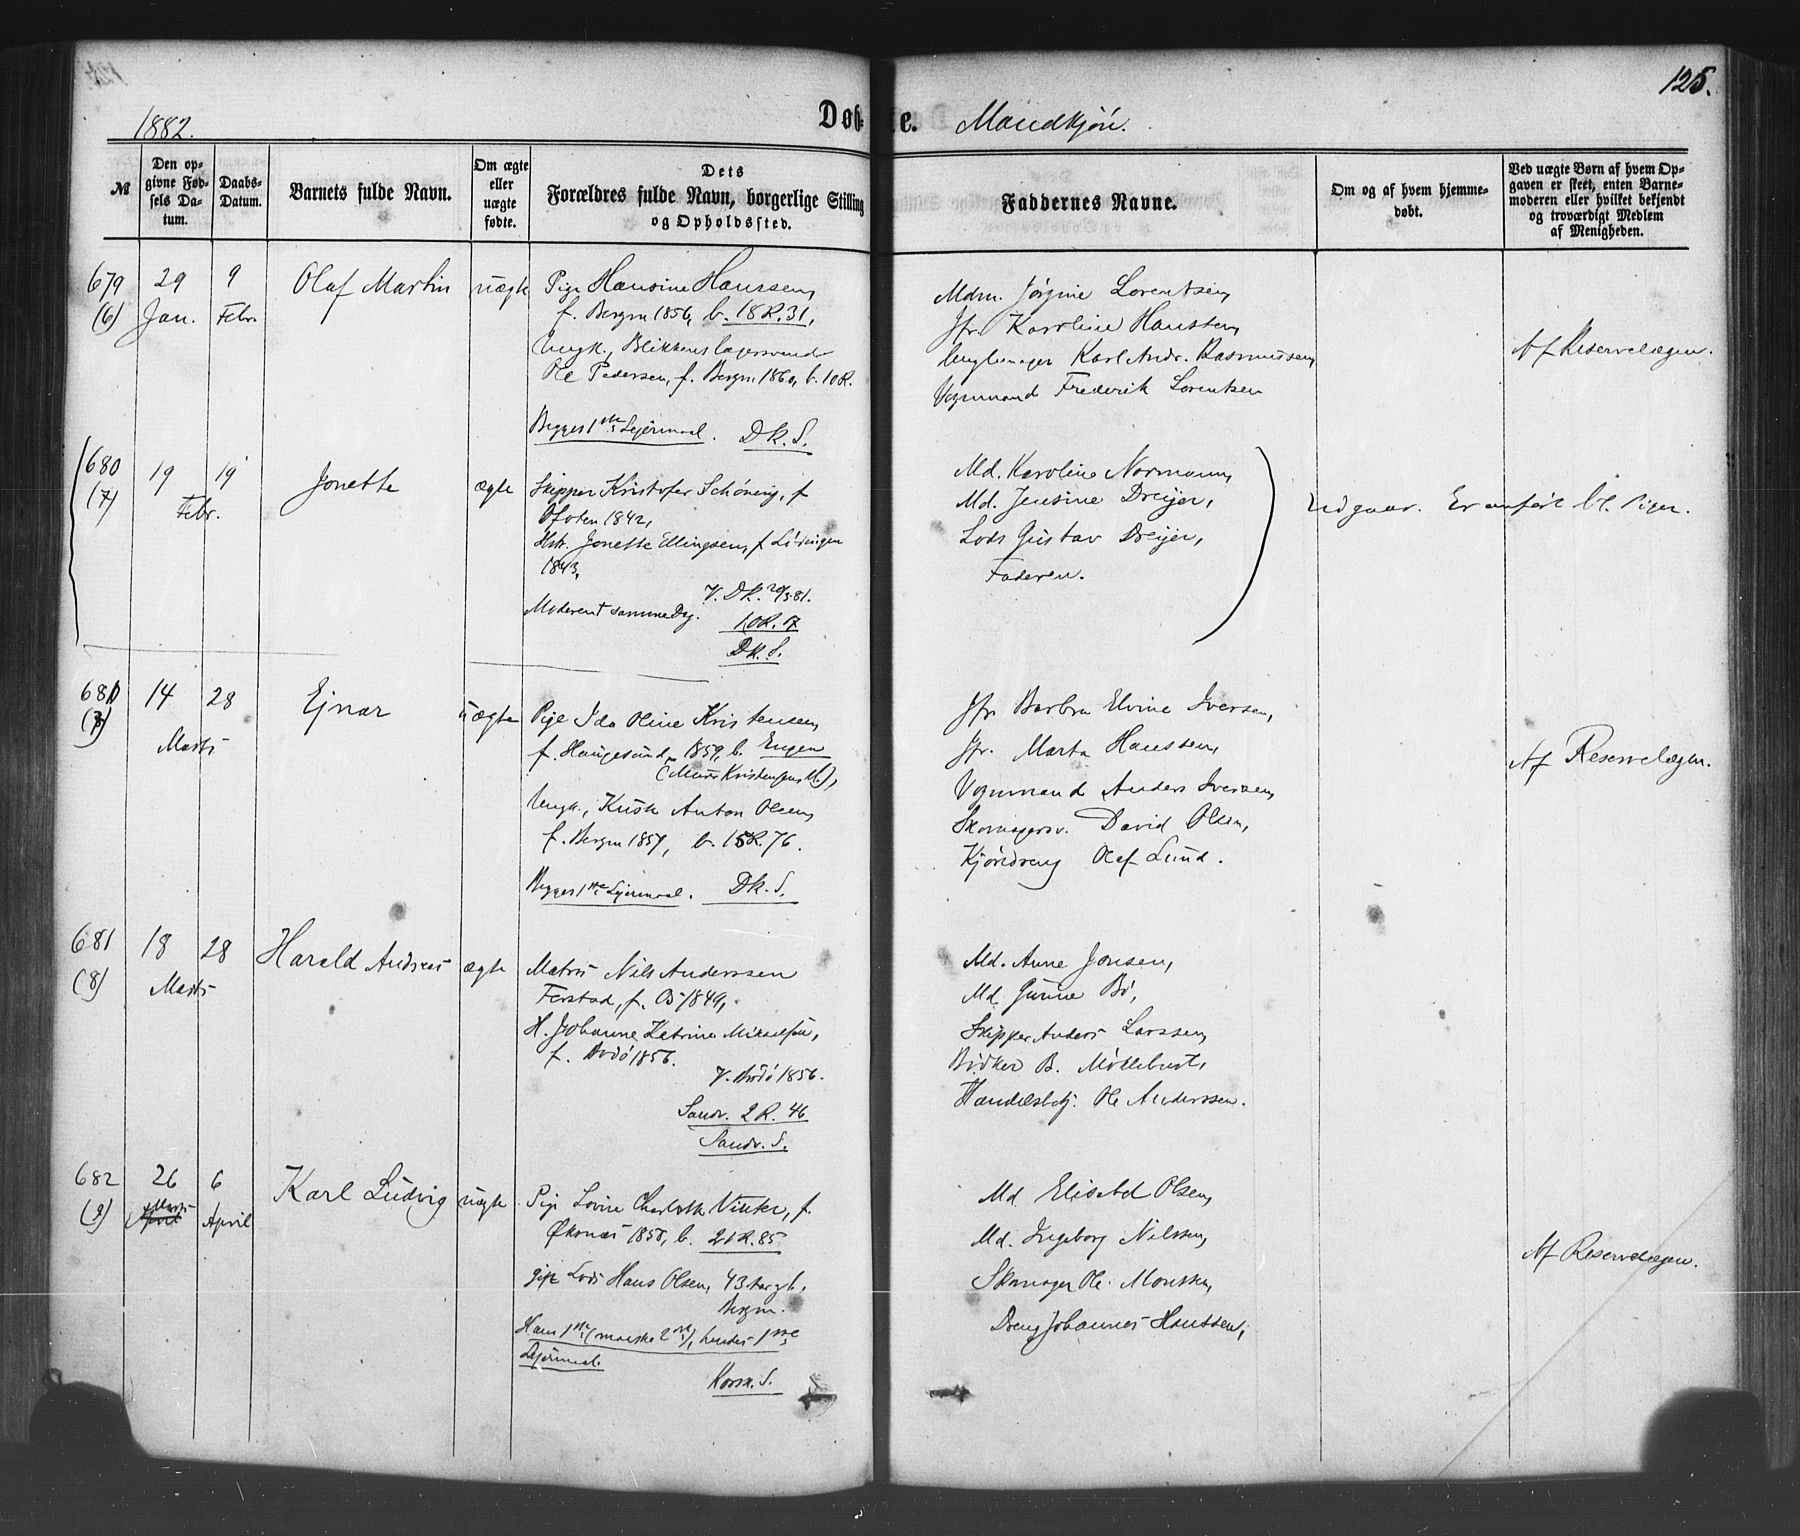 125.
1882.
Døbte. Mandkjön.
№
Den opgivne Fødsels Datum.
Daabs-Datum.
Barnets fulde Navn.
Om ægte eller uægte fødte.
Dets Forældres fulde Navn, borgerlige Stilling og Opholdssted.
Faddernes Navne.
Om og af hvem hjemmedøbt.
Ved uægte Børn af hvem Opgaven er skeet, enten Barnemoderen eller hvilket bekjendt og troværdigt Medlem af Menigheden.
679
(6)
29 Jan.
9 Febr.
Olaf Martin
uægte
Pige Hansine Hanssen,
f. Bergen 1856, b. 18 R. 31,
Ungk., Blikkenslagersvend
Ole Pedersen, f. Bergen 1860, b. 10 R.
Begges 1ste Lejermaal. Dk. S.
Mdm. Jörgine Lorentsen,
Jfr. Karoline Hansten,
Karl Andr. Rasmussen,
Vognmand Frederik Lorentsen
Af Reservelægen.
680
(7)
19
19
Febr.
Jonette
ægte
Skipper Kristofer Schöning, f.
Ofoten 1842,
Hstr. Jonette Ellingsen, f. Lödingen
1843,
V. DK. 20/3 81.
Moderen samme Dag.
10 R. 17
Dk. S.
Md. Karoline Normann,
Md. Jensine Dreyer,
Lods Gustav Dreyer,
Faderen.
Udgaar. Er anfört bl. Piger.
681
(7)
14
28
Marts
Ejnar
uægte
Pige Ida Oline Kristensen,
f. Haugesund, 1859, b. Engen
Ungk., Kusk Anton Olsen,
f. Bergen 1857, b. 15 R. 76.
Begges 1ste Lejermaal. Dk. S.
Jfr. Barbra Elvine Iversen,
Jfr. Marta Hanssen,
Vognmand Anders Iversen,
Skomagersv. David Olsen,
Kjöredreng Olaf Lund.
Af Reservelægen.
681
(8)
18
28
Marts
Harald Andreas
ægte
Matros Nils Anderssen
Ferstad, f. Os 1849,
H. Johanne Katrine Mikaelsen,
f. Bodö 1856.
V. Bodö 1856.
Sandv. 2 R. 46
Sandv. S.
Md. Anne Jonsen,
Md. Gurine Bö,
Skipper Anders Larssen,
Bödker B. Möllebust,
Handelsbetj. Ole Anderssen.
682
(9)
26
Marts
April
6
April
Karl Ludvig
uægte
Pige Lovise Charlotte Vinter, f.
Öksnæs 1858, b. 21 R. 85
gift Lods Hans Olsen, 43 Aar gl.,
Bergen.
Hans 1ste (maaske 2det), hendes 1ste
Lejermaal.
Korsk. S.
Md. Elisabet Olsen,
Md. Ingeborg Nilssen,
Skomager Ole Monssen,
Dreng Johannes Hanssen,
Af Reservelægen.